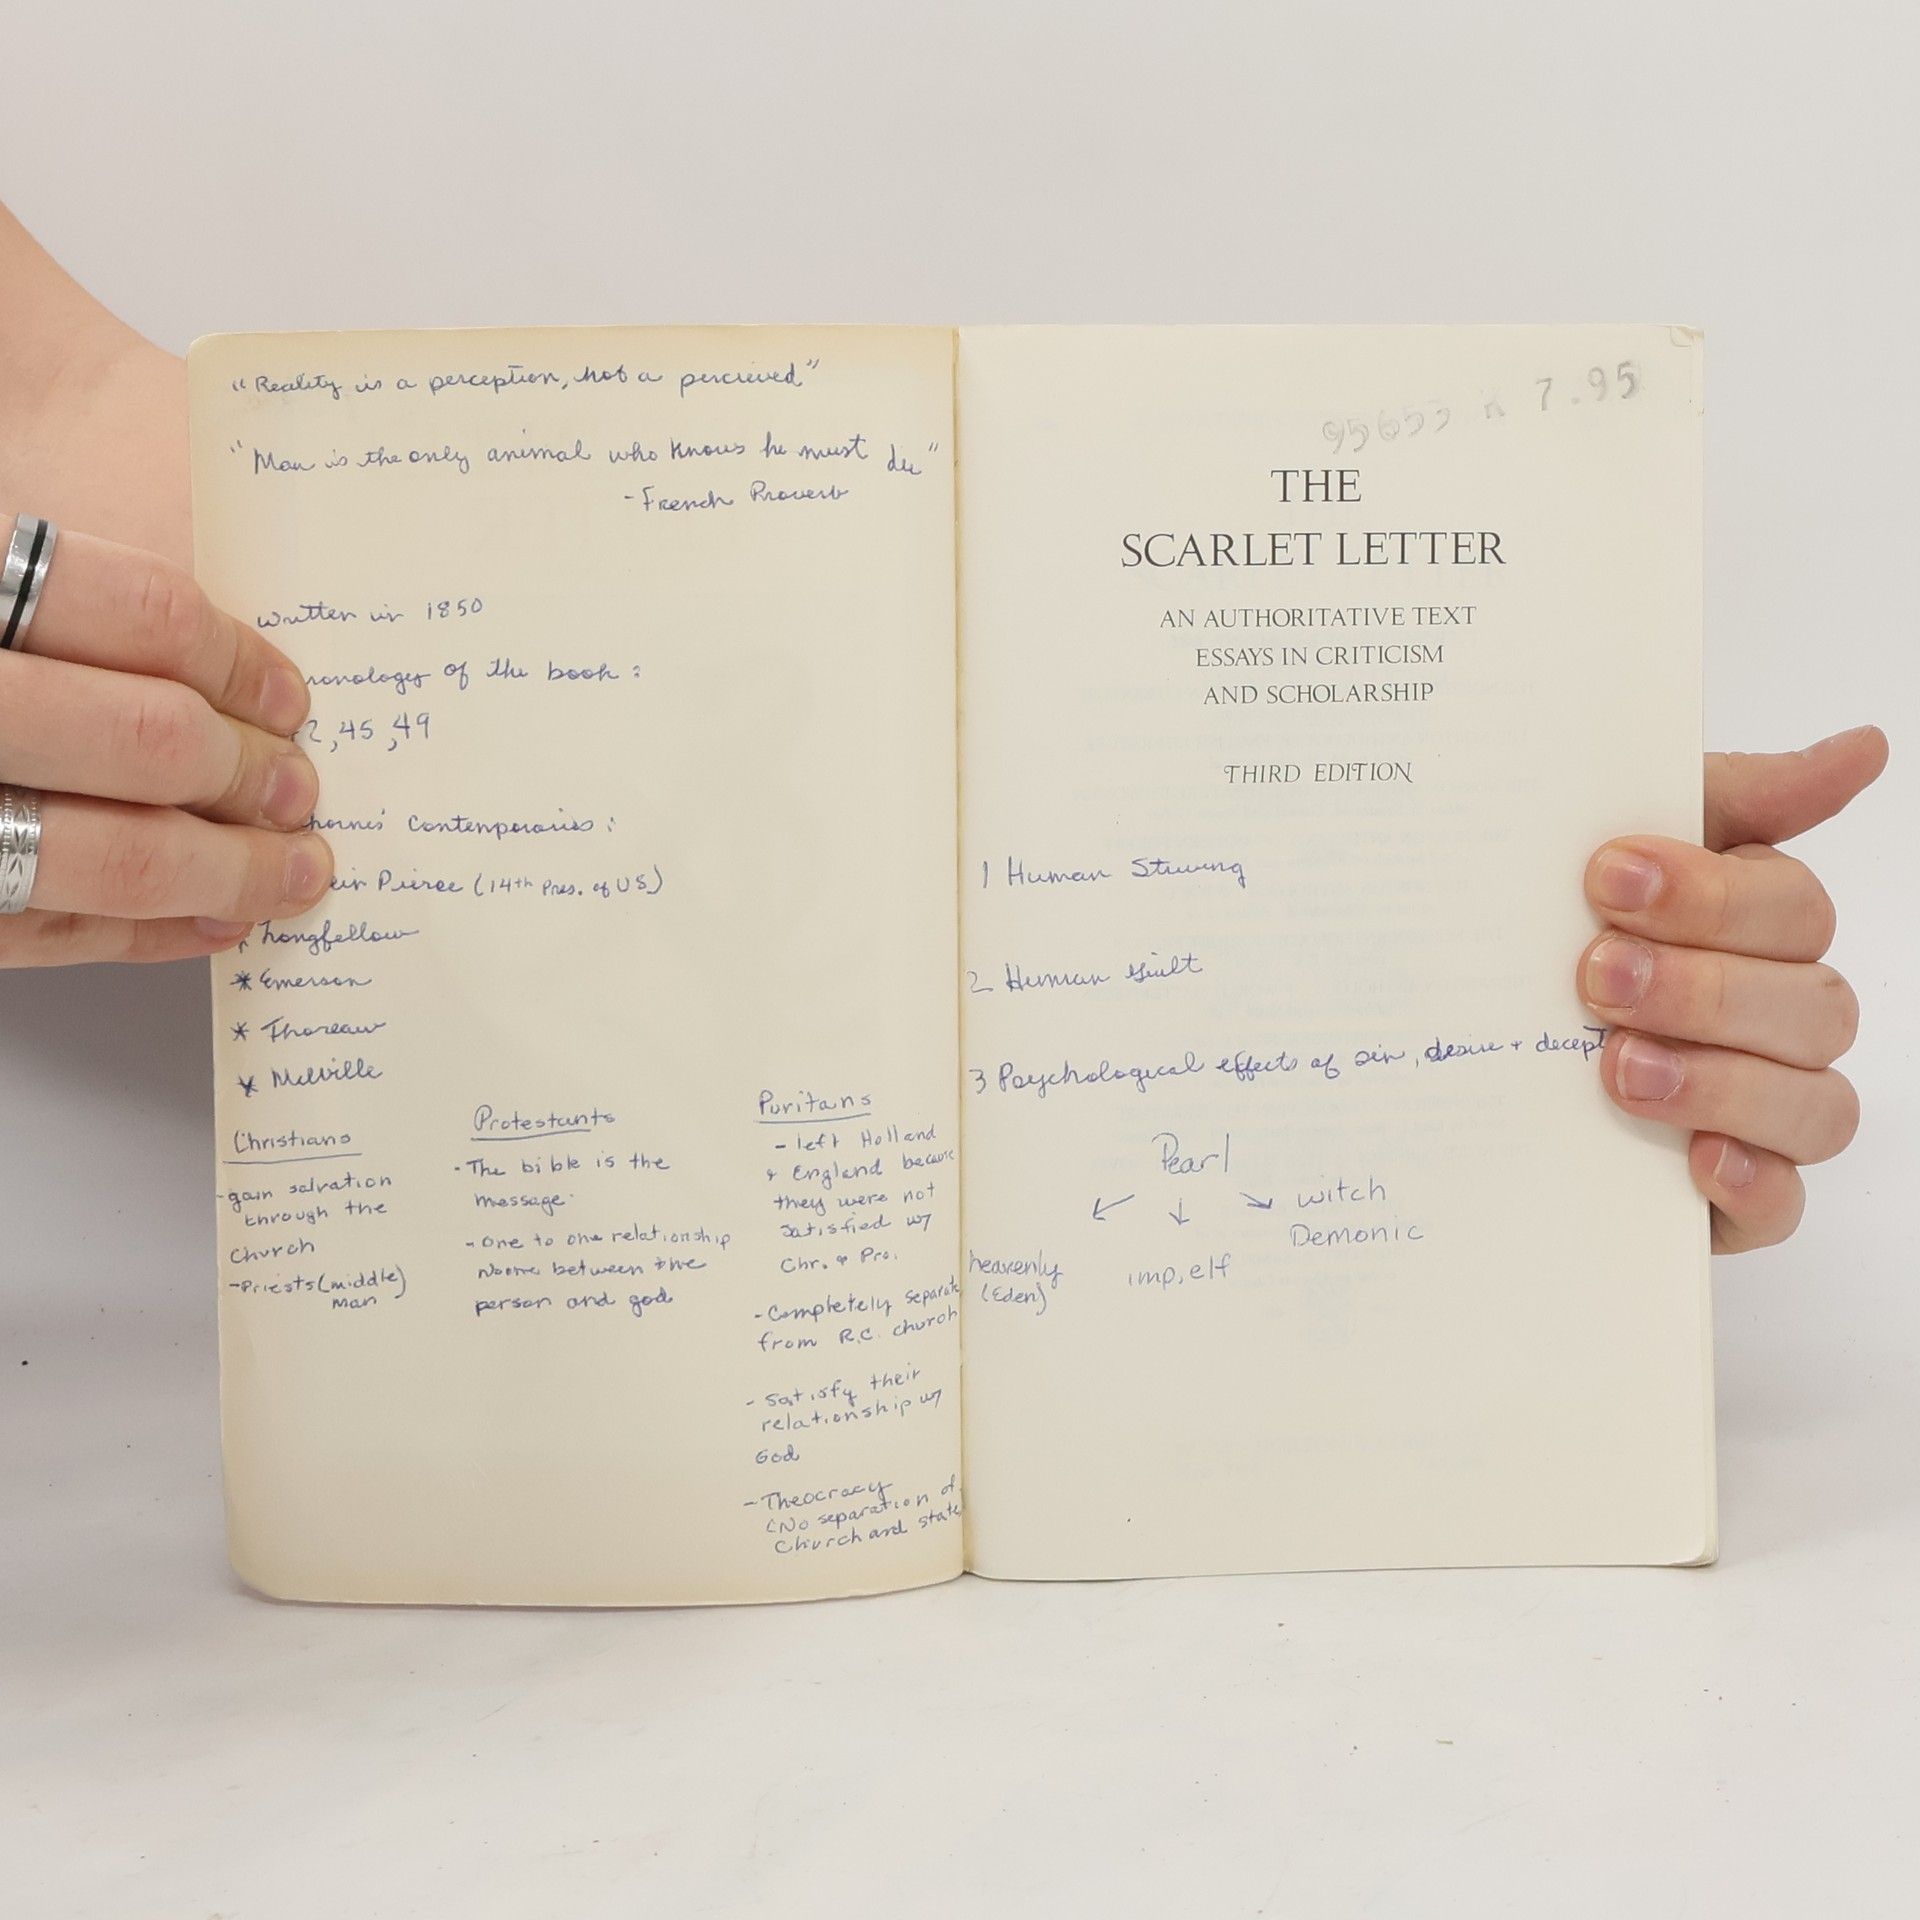 "Reality is a perception, not a percieved"
"Man is the only animal who knows he must die"
-French Proverb
written in 1850
ronology of the book:
2, 45, 49
hornes' Contemporaries:
Pierce (14th Pres. of US)
Longfellow
* Emerson
* Thoreau
* Melville
Christians
-gain salvation
through the
Church
-Priests (middle)
man
Protestants
-The bible is the
message.
-One to one relationship
Noone between the
person and god
Puritans
- left Holland
& England because
they were not
satisfied w/
Chr. & Pro.
-Completely separate
from R.C. church
- Satisfy their
relationship w/
God
-Theocracy
(No separation of
Church and state
7.95
THE
SCARLET LETTER
AN AUTHORITATIVE TEXT
ESSAYS IN CRITICISM
AND SCHOLARSHIP
THIRD EDITION
1 Human
2 Human Guilt
3 Psychological effects of sin, desire + decept
Pearl
witch
Demonic
imp, elf
heavenly
(Eden)